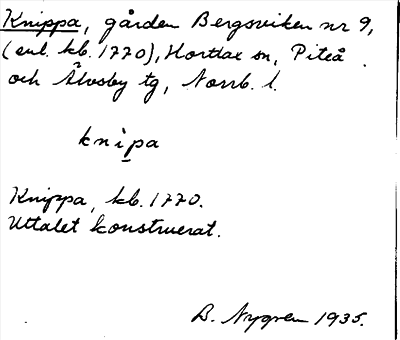 Knippa, gården Bergsviken nr 9,
(enl. kb. 1770), Hortlax sn, Piteå
och Älvsby tg, Norrb. l.
knipa
Knippa, kb. 1770.
Uttalet konstruerat.
B. Nygren 1935.